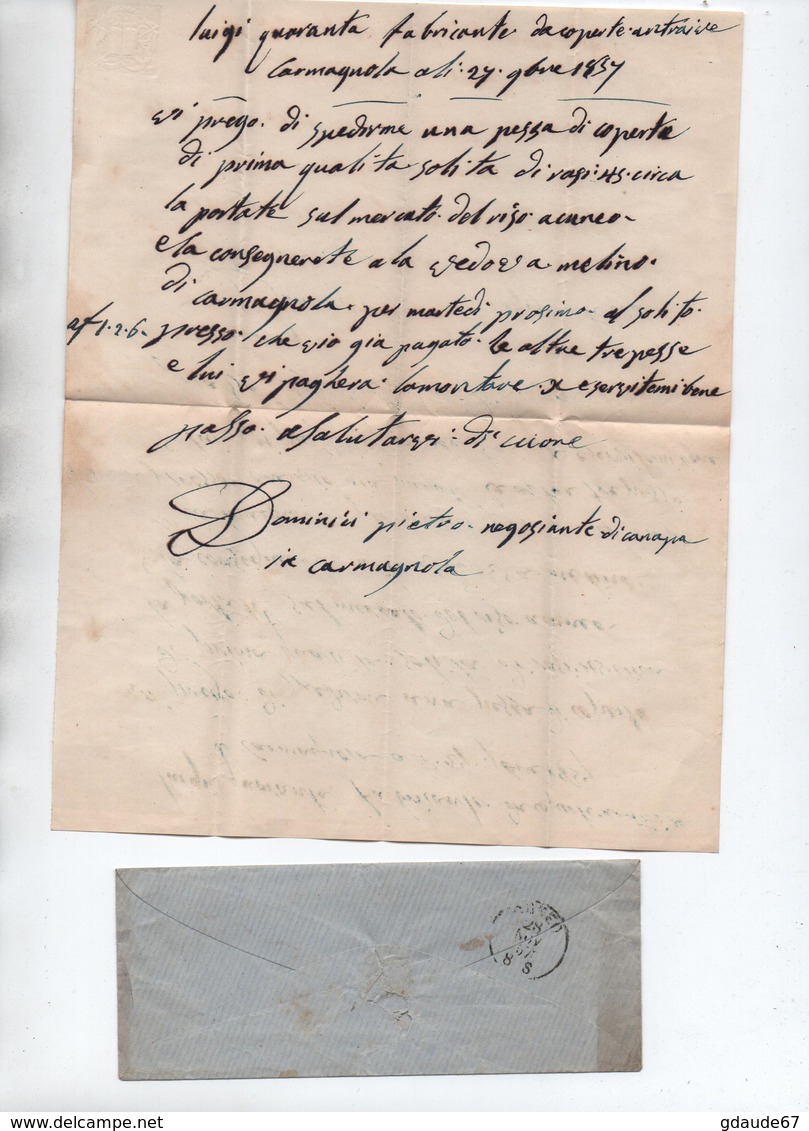 luigi quaranta fabricante da coperte antraive
Carmagnola ali 27 9bre 1857
vi prego di spedirme una pessa di coperte
di prima qualita solita di rasi 45 circa
la portate sul mercato del riso a cuneo
e la consegnerete a la vedova melino
di carmagnola per martedi prosimo al solito
af 1.2.6 presso che vio gia pagato le altre tre pesse
e lui vi paghera lamontare e servitemi bene
passo a salutarvi di cuore
Dominici pietro negosiante di canapa
in carmagnola
CUNEO
gdaude67